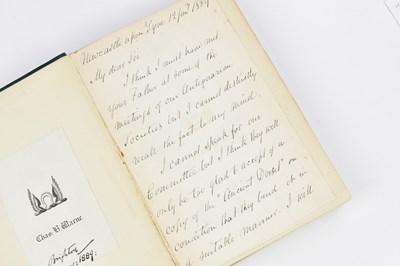 Newcastle upon Tyne 12 Jany 1889
My dear Sir
I think I must have met
your Father at some of the
meetings of our Antiquarian
Societies but I cannot distinctly
recall the fact to my mind.
I cannot speak for our
Committee but I think they will
only be too glad to accept of a
copy of the "Ancient Dorset" on
condition that they bind it in
a suitable manner. I will
Chas. H. Warne
Brighton
1889.